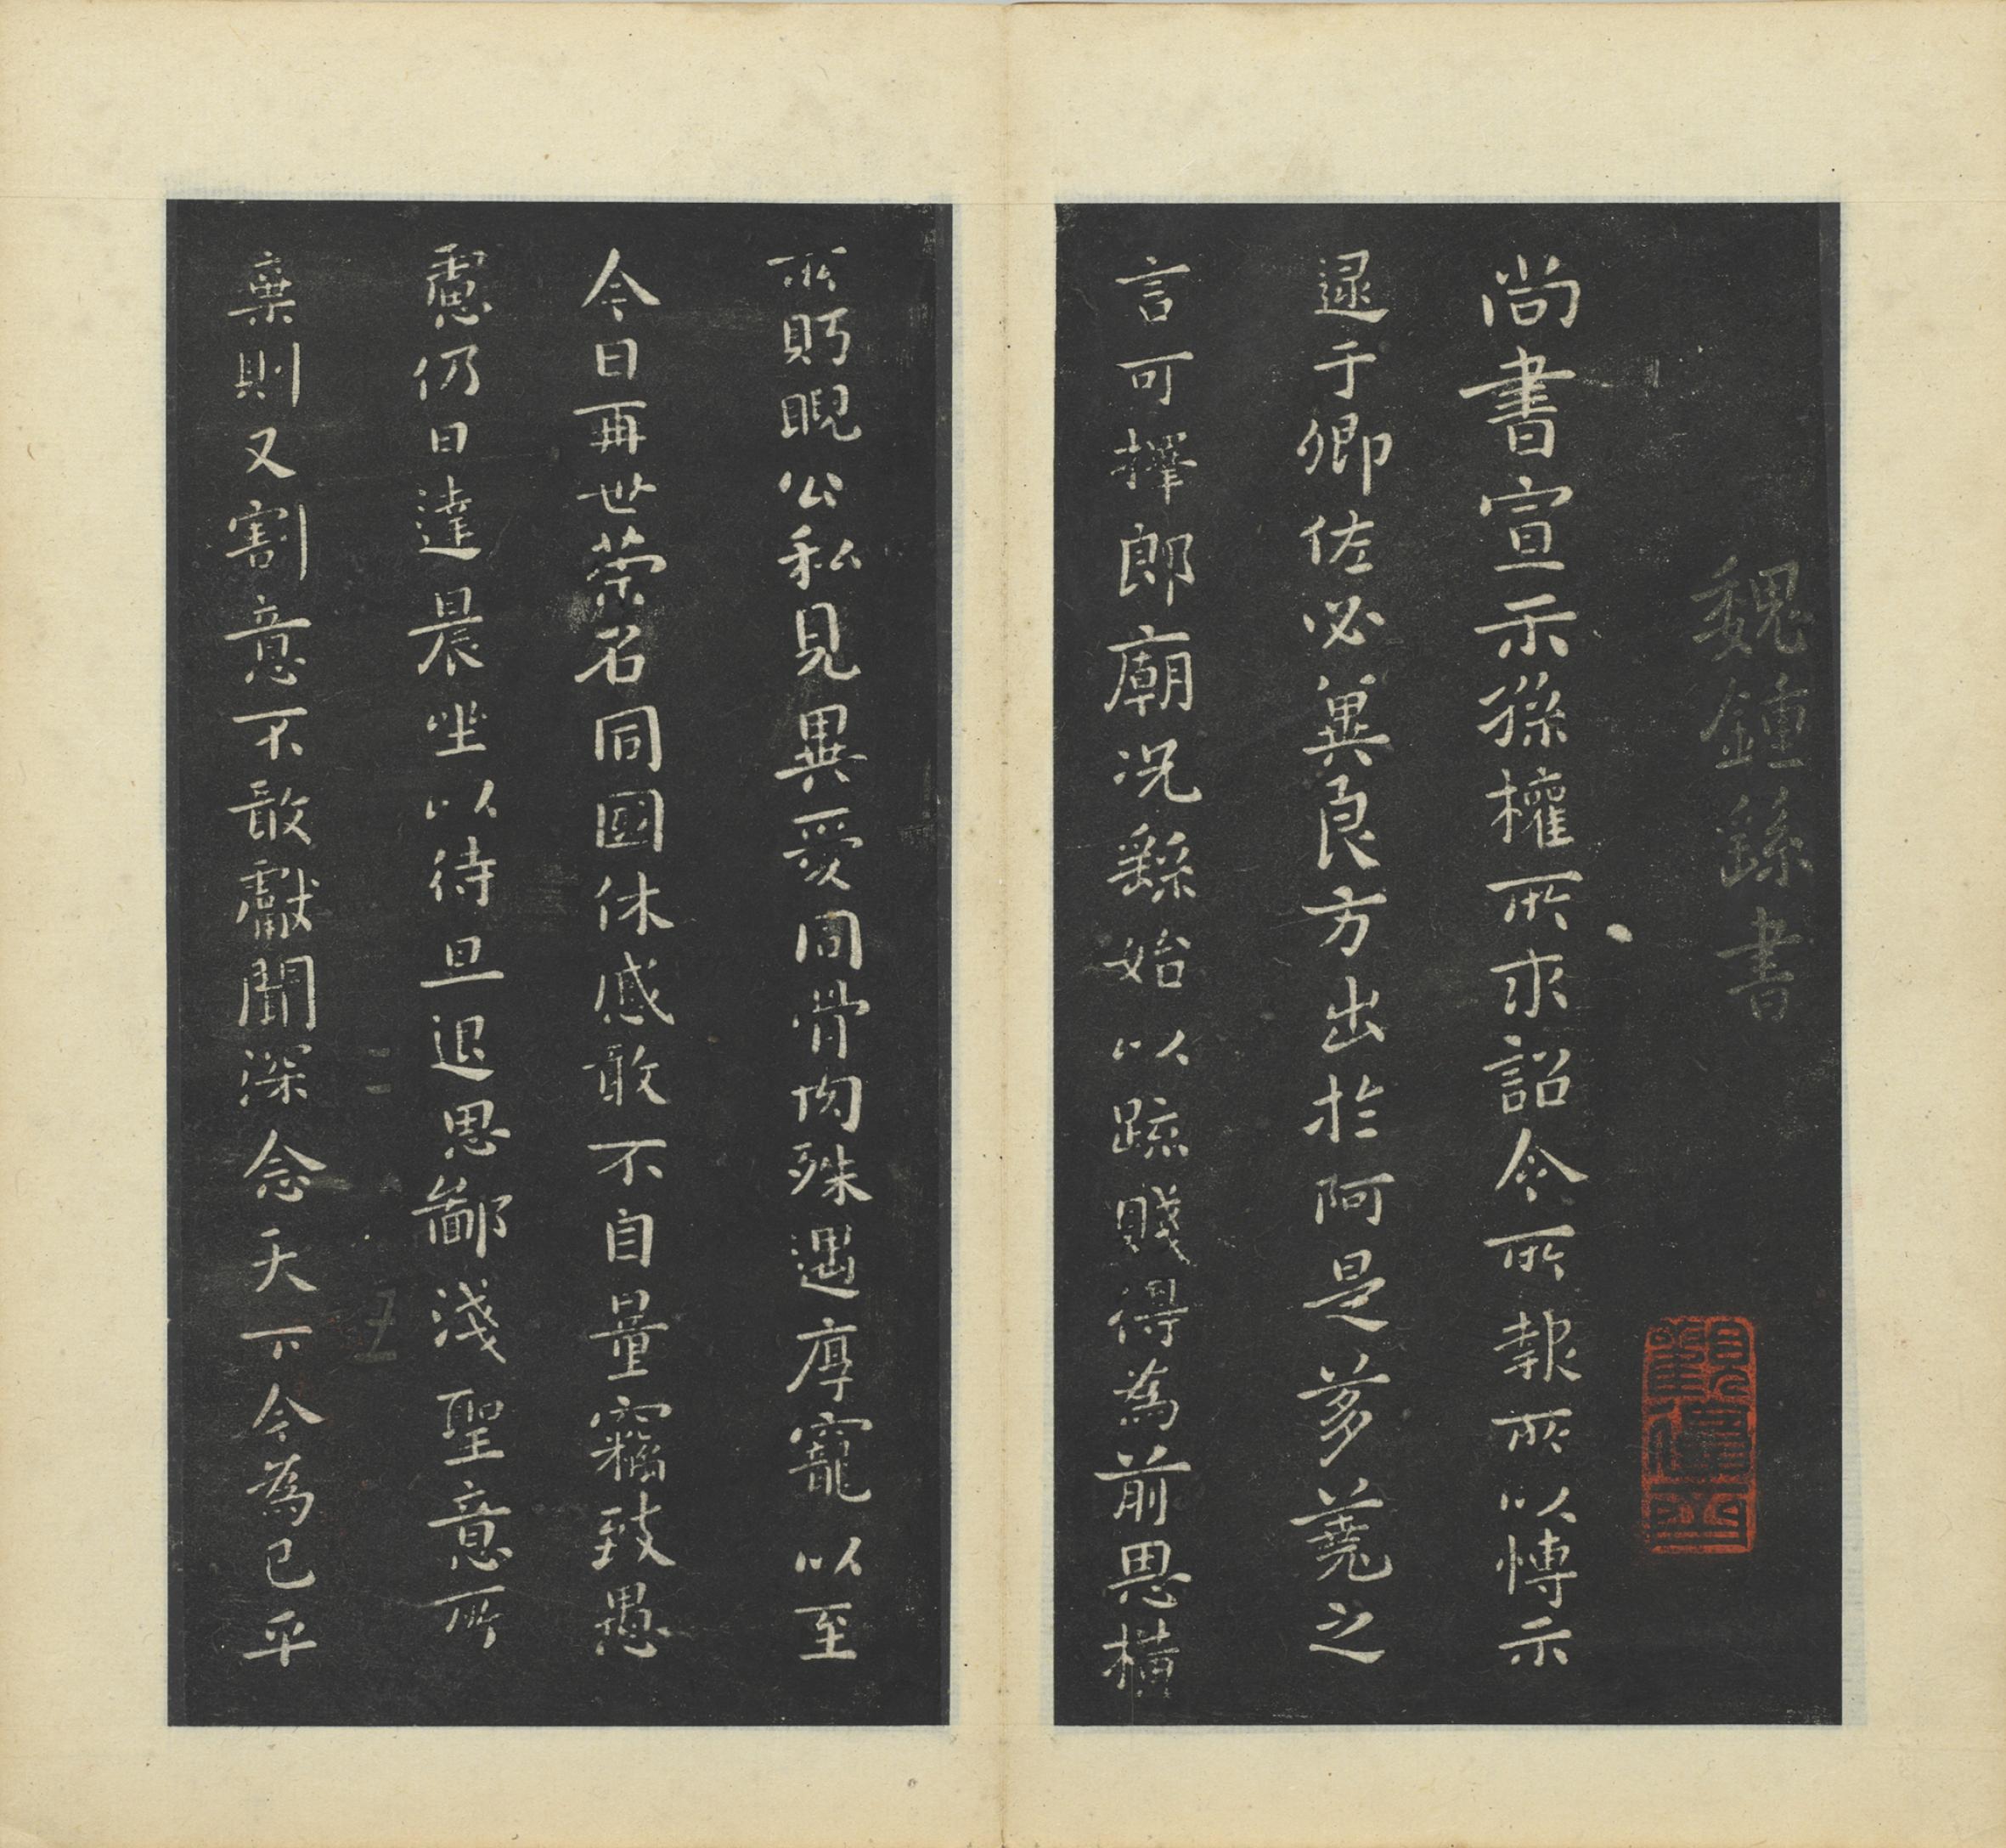 魏鍾繇書
尚書宣示孫權所求詔令所報所以博示
逮于卿佐必冀良方出於阿是芻蕘之
言可擇郎廟況繇始以疏賤得為前恩橫
所眄睨公私見異愛同骨肉殊遇厚寵以至
今日再世榮名同國休慼敢不自量竊致愚
慮仍日達晨坐以待旦退思鄙淺聖意所
棄則又割意不敢獻聞深念天下今為已平
二
五